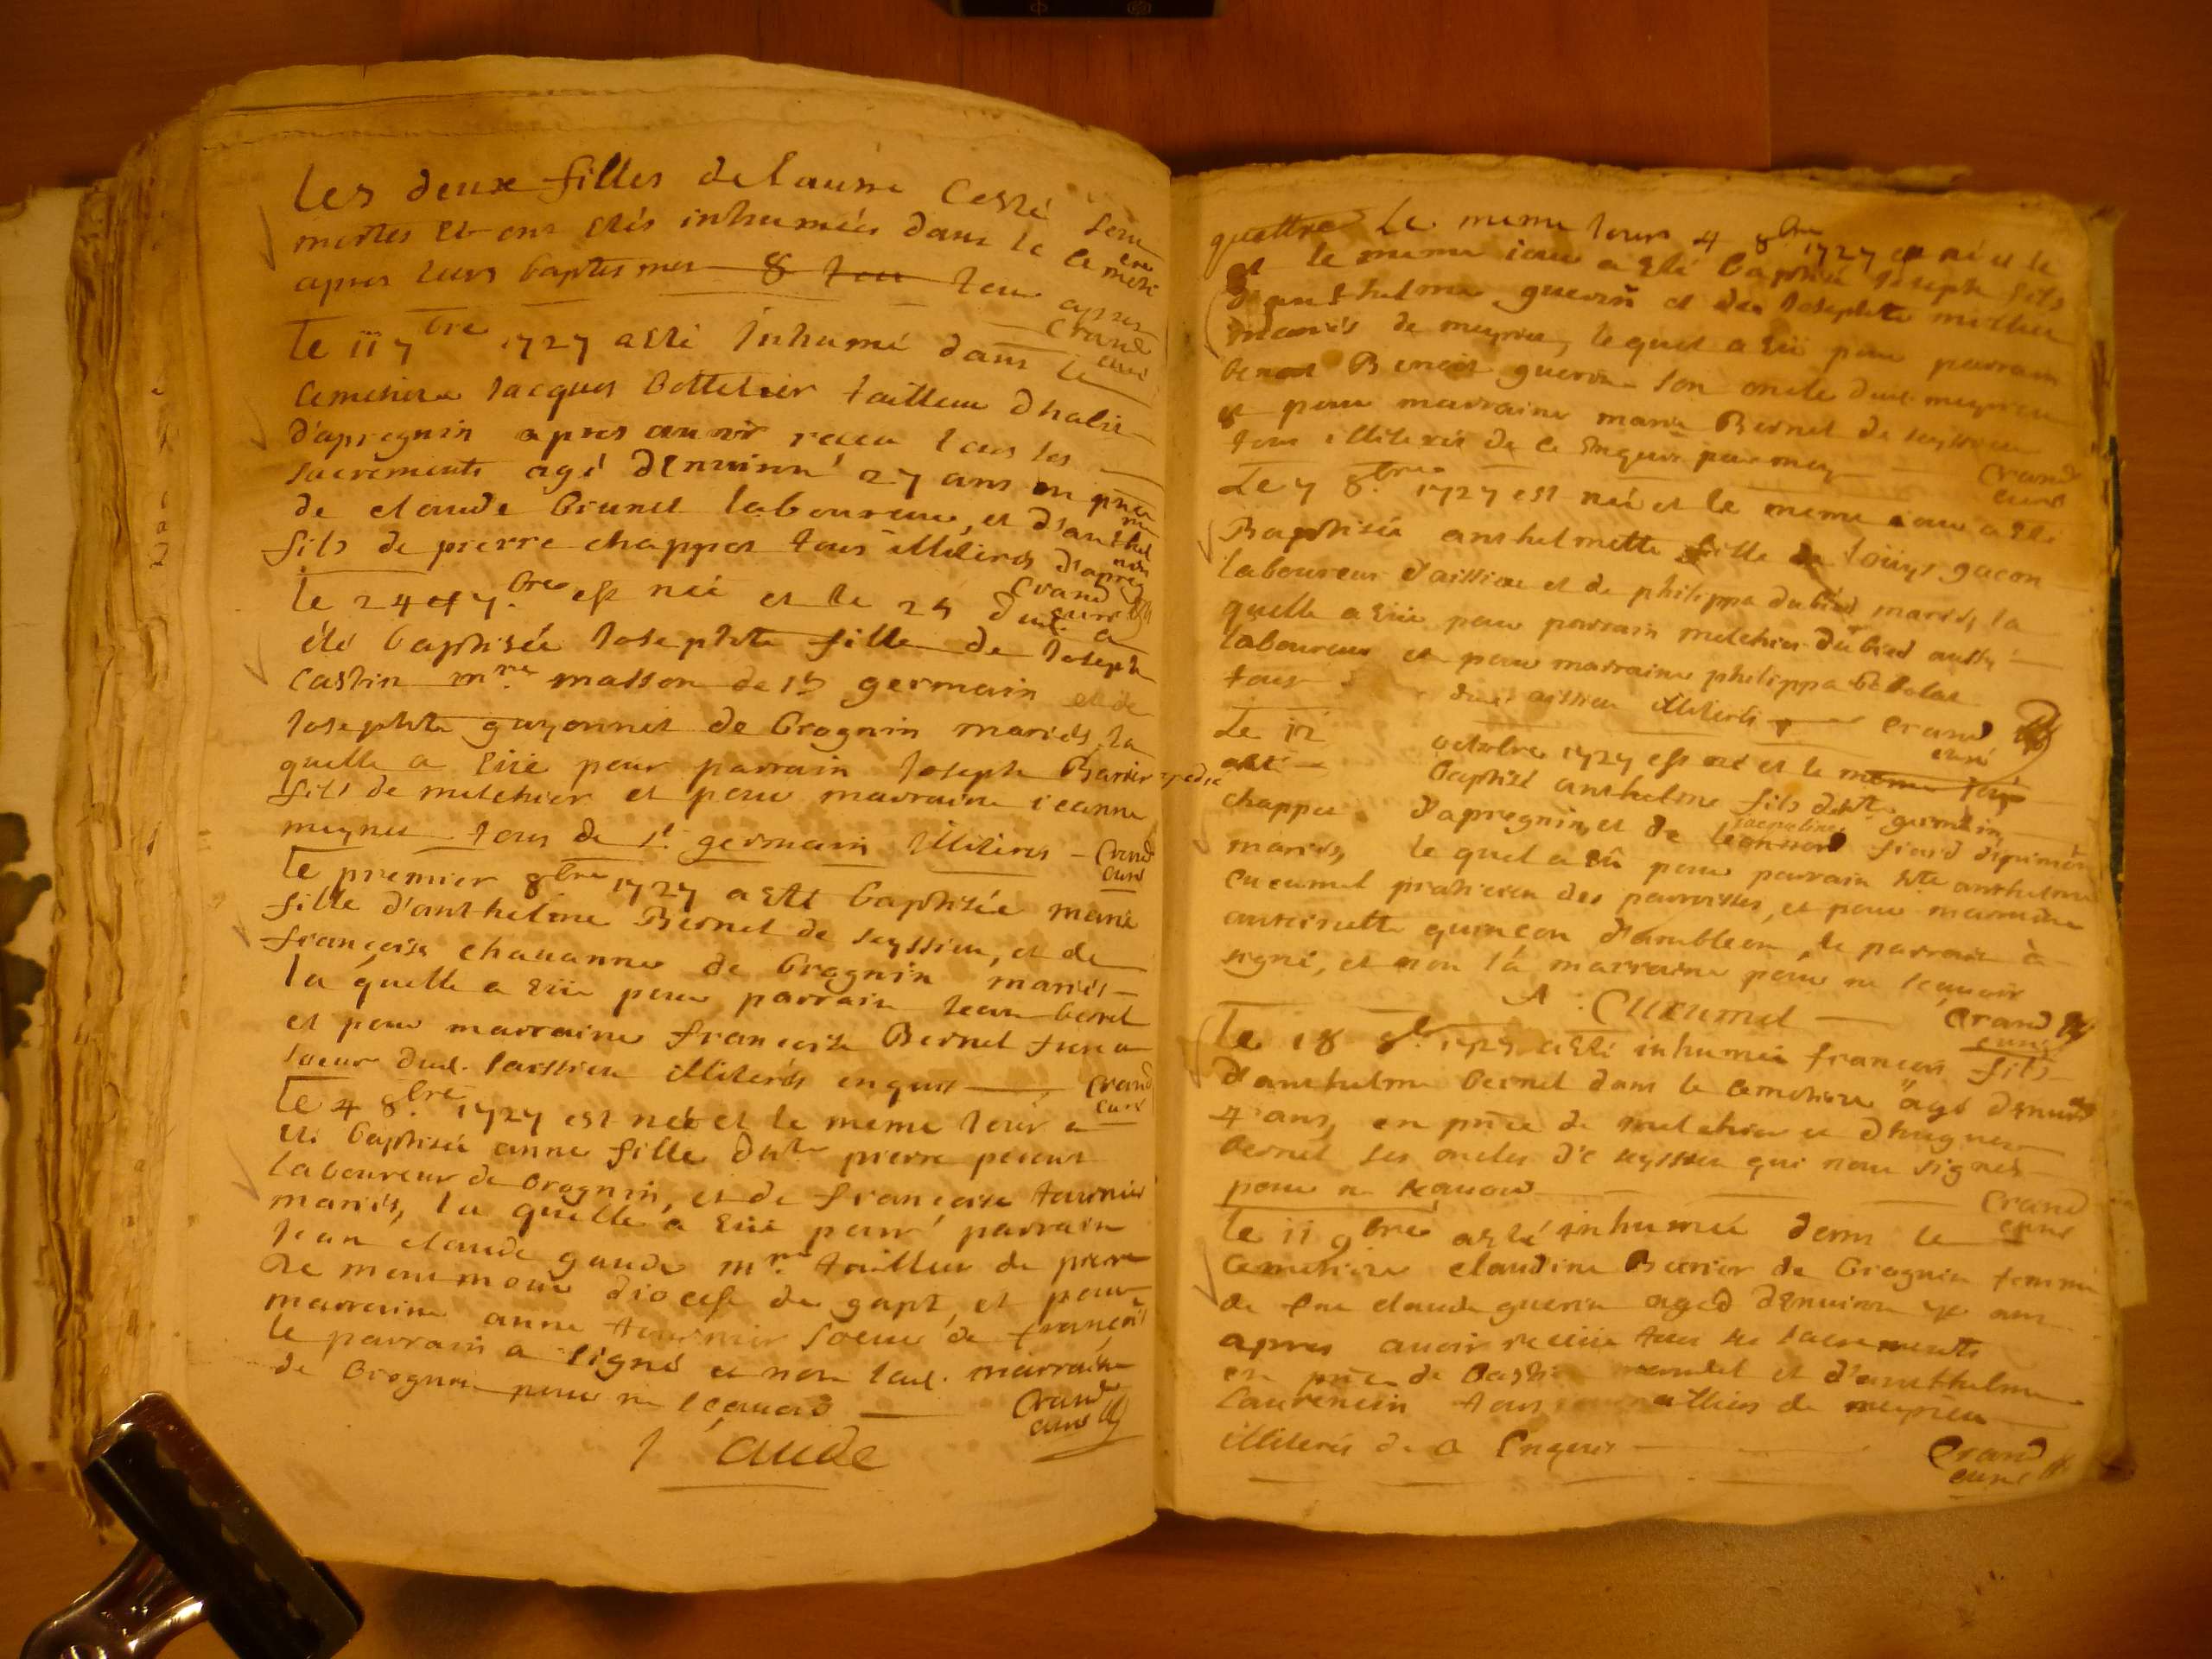 les deux filles de lautre Costé sont
mortes et ont estés inhumées dans le cemeti ere
apres leurs baptesmes 8 jour jour apres
Crand curé
Le 11 7bre 1727 a esté Inhumé dans le
Cemetiere Jacques Bottelier tailleur dhabis
d'apregnin apres auoir receu tous les
sacrements agé d'Enuiron 27 ans en pnce
de claude brunet laboureur, et d'anthel me
fils de pierre chappot tous illiterés d'apreg nin
Crand curé
le 24e 7.bre est née et le 25 dud. a
été baptisée Josephte fille de Joseph
Castin mtre masson de St germain et de
Josephte guyonnet de brognin mariés, la
quelle a Eüe pour parrain Joseph Barrier
fils de melchior et pour marraine ieanne
meynet tous de St. germain Illiterés - Crand curé
Le premier 8bre 1727 a esté baptisée marie
fille d'anthelme Bernet de seyssieu, et de
françoise chauanne de brognin mariés
la quelle a Eüe pour parrain Jean bernet
et pour marraine françoise Bernet
soeur dud. illiterés enquis Crand curé
Le 4 8.bre 1727 est née et le meme Jour a
été baptisée anne fille d'hte pierre
laboureur de brognin, et de françoise tournier
mariés, la quelle a Eüe pour parrain
Jean claude gaude mtre tailleur de pierre
de diocese de gapt, et pour
marraine anne tournier soeur de françoise
le parrain a signé et non lad. marraine
de brognin pour ne sçauoir
Crand curé
J Gaude
quattre Le meme Jour 4 8bre 1727 est né et le
et le meme iour a esté baptisé Joseph fils
d'anthelme guerin et de Josephte
mariés de meyrieu, lequel a Eü pour parrain
benoit Benoit guerin son oncle dud. meyrieu
et pour marraine marie Bernet de seyssieu
tous illiterés de ce Enquis par moy Crand curé
Le 7 8.bre 1727 est née et le meme iour a esté
Baptisée anthelmette fille de loüys gacon
laboureur d'aissieu et de philippa dubied mariés, la
quelle a Eüe pour parrain melchior dubied aussy
laboureur et pour marraine philippa
tous dud. aissieu illiterés Crand curé
Le 12 octobre 1727 est né et le meme jour
esté baptisé anthelme fils d'hte germain
chappot d'apregnin, et de leonnord jacqueline fiard
mariés, le quel a eû pour parrain Hte anthelme
cucumel praticien des parroisses, et pour marraine
antoinette quinçon d'ambleon, le parrain à
signé, et non la marraine pour ne sçauoir
A : Cucumel Crand curé
Le 18 8bre 1727 a esté inhumé françois fils
d'anthelme bernet dans le cemetiere agé denuiron
4 ans, en pnce de melchior et d'hugues
bernet ses oncles de seyssieu qui nont signés
pour ne sçauoir
Crand curé
le 11 9bre a esté inhumée dans le
Cemetiere claudine Barrier de brognin femme
de feu claude guerin agée d'Enuiron ans
apres auoir receüe tous les sacrements
en pnce de et d'anthelme
laurencin tous de meyrieu
illiterés de ce Enquis
Crand curé